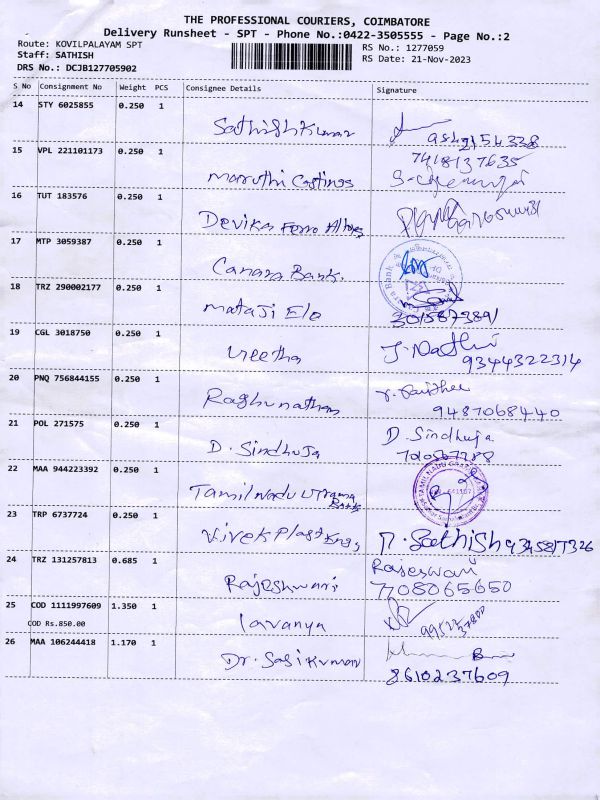 THE PROFESSIONAL COURIERS, COIMBATORE
Delivery Runsheet - SPT - Phone No.:0422-3505555 - Page No.:2
Route: KOVILPALAYAM SPT
Staff: SATHISH
DRS No.: DCJB127705902
RS No.: 1277059
RS Date: 21-Nov-2023
S No Consignment No Weight PCS Consignee Details Signature
14 STY 6025855 0.250 1
Sathish Kumar
15 VPL 221101173 0.250 1
7418137635
Maruthi Castings
16 TUT 183576 0.250 1
Devika Ferro Alloys
17 MTP 3059387 0.250 1
Canara Bank.
18 TRZ 290002177 0.250 1
Mataji Ele
19 CGL 3018750 0.250 1
Veetha J. Nathi
9344322314
20 PNQ 756844155 0.250 1
Raghunathan
9487068440
21 POL 271575 0.250 1
D. Sindhuja D. Sindhuja
22 MAA 944223392 0.250 1
Tamil Nadu Grama Bank
23 TRP 6737724 0.250 1
Vivek Plast Engg
24 TRZ 131257813 0.685 1
Rajeshwari Rajeswari
7708065650
25 COD 1111997609 1.350 1
COD Rs.850.00
lavanya
26 MAA 106244418 1.170 1
Dr. Sasikumar
8610237609